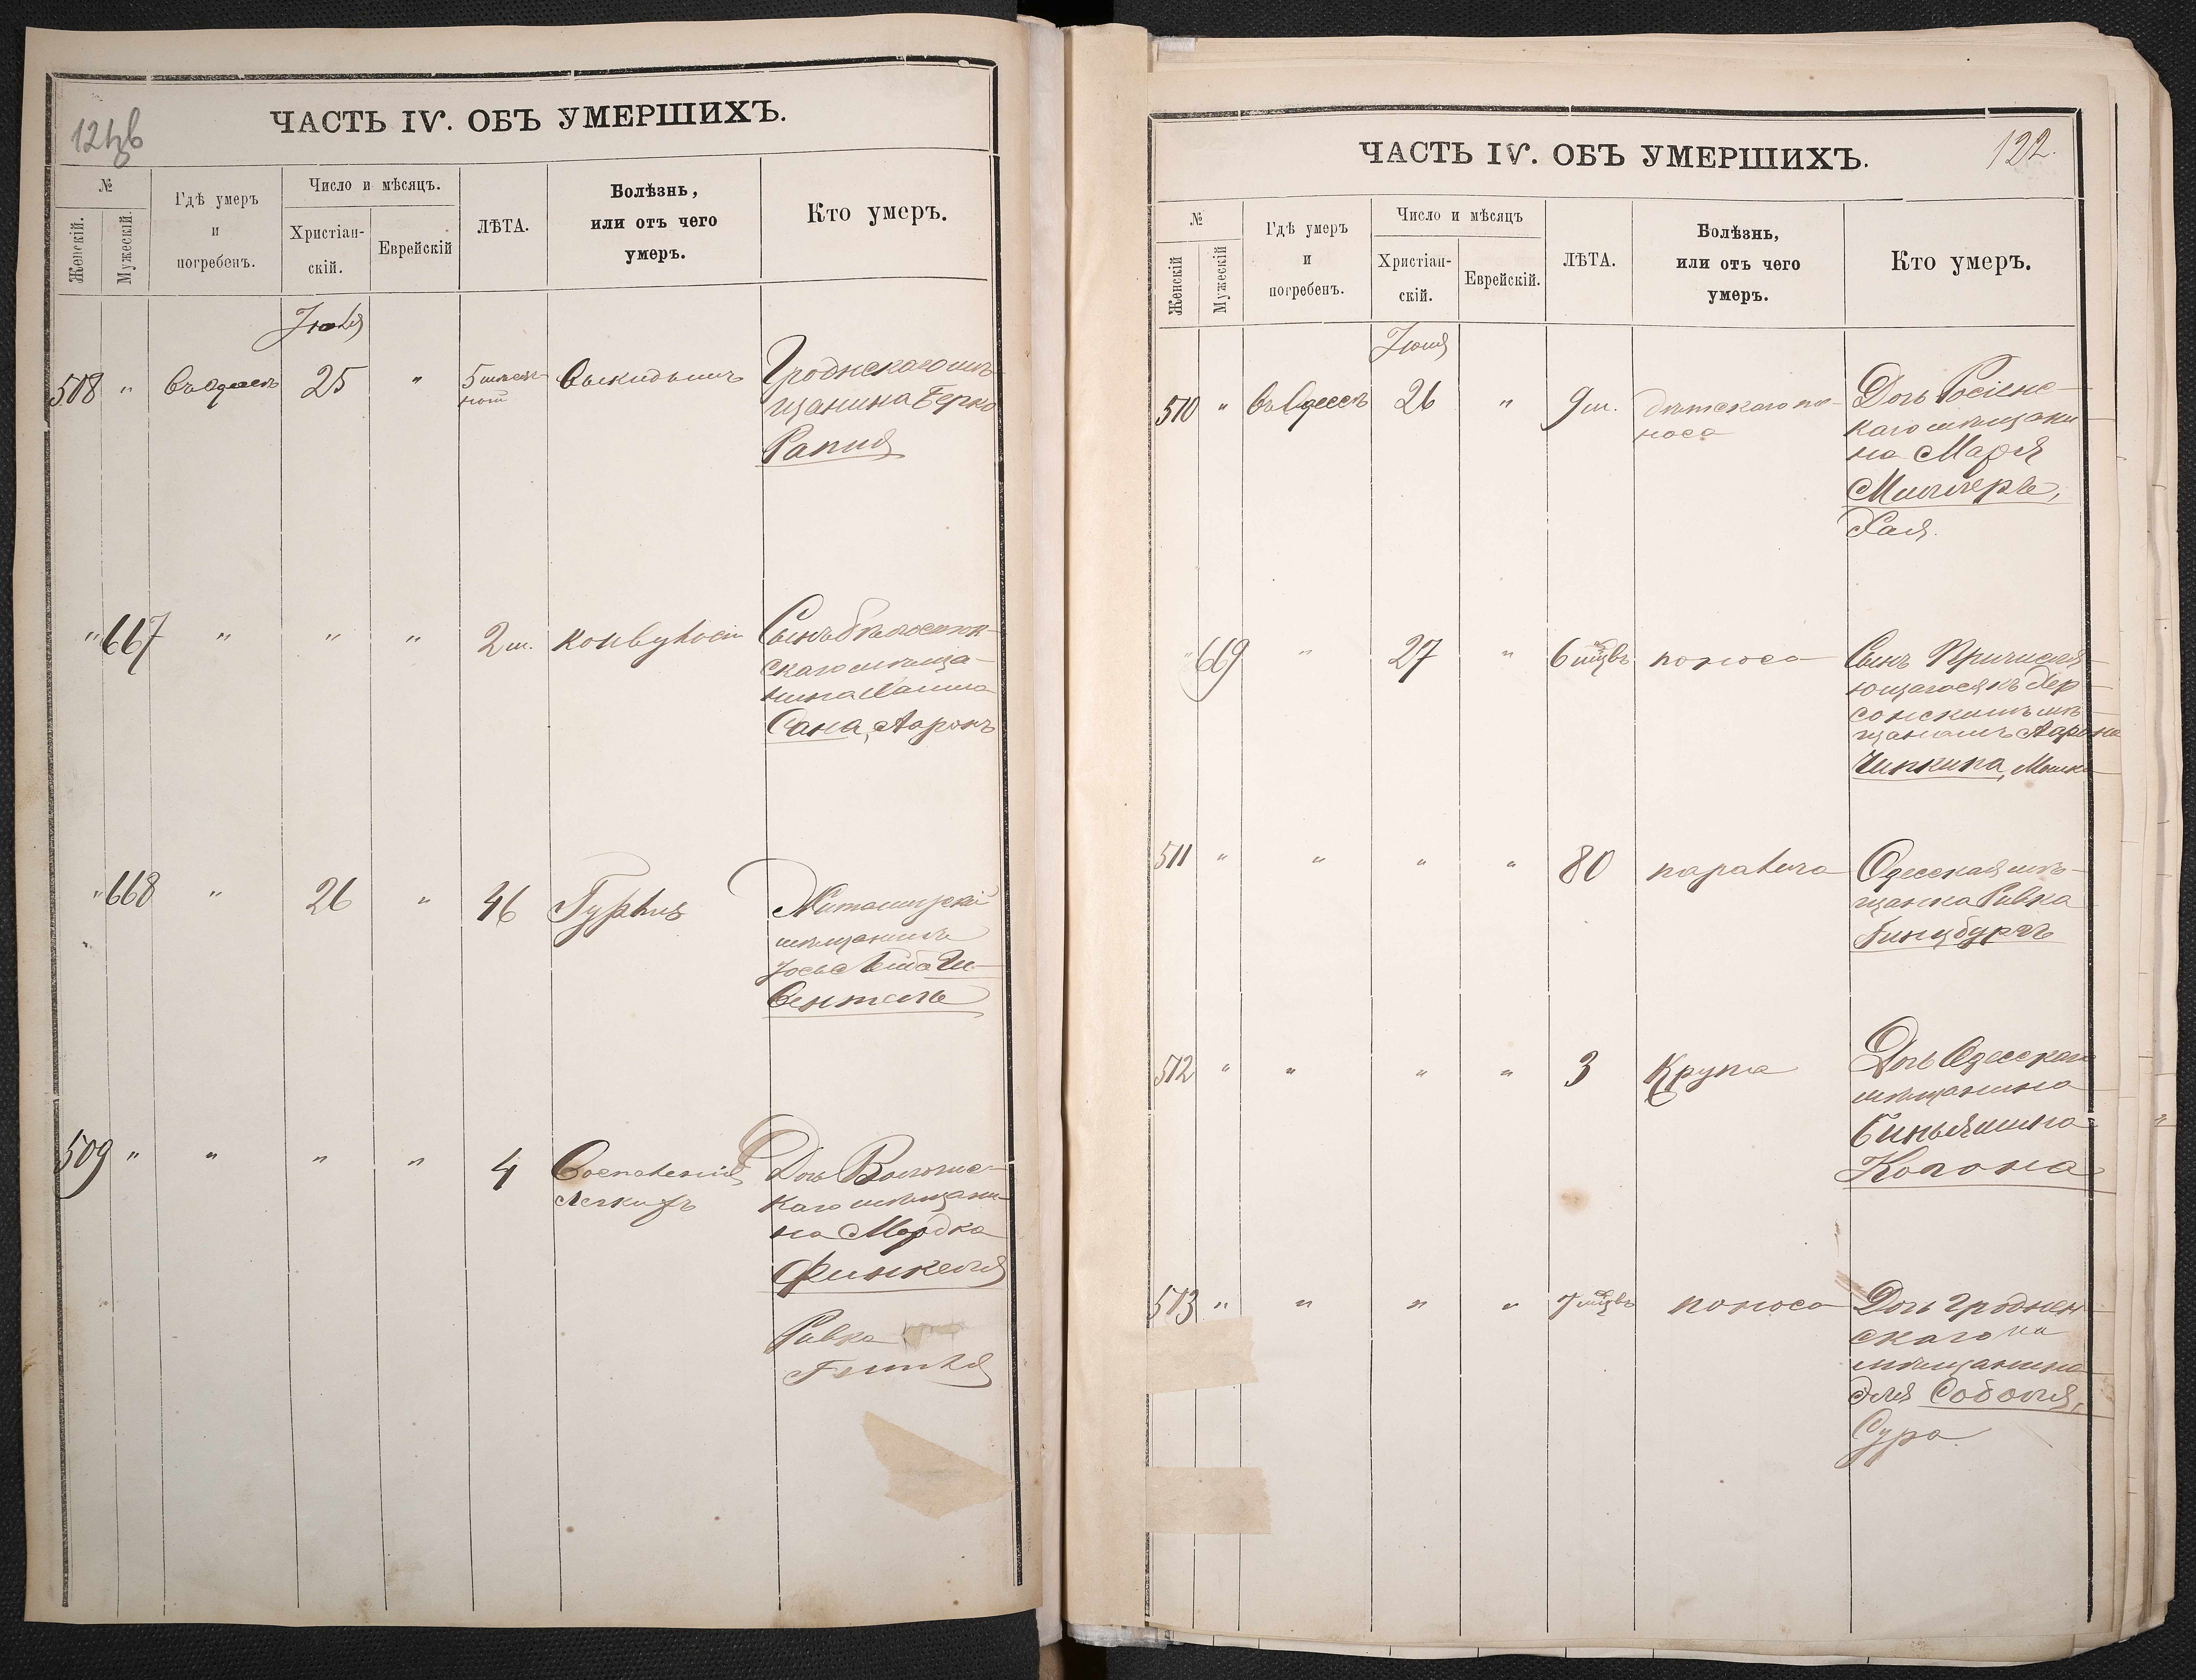 ЧАСТЬ IV. ОБЪ УМЕРШИХЪ.
№
Женскій.
Мужескій.
Гдѣ умеръ
и
погребенъ.
Число и мѣсяцъ.
Христіан-
скій.
Еврейскій
ЛѢТА.
Болѣзнь,
или отъ чего
умеръ.
Кто умеръ.
508 " въ Одессѣ 25 " 5 мѣсяч-
ный
выкидышъ
Гродненскаго мѣ-
щанина Берко
" 667 " " " 2 м. конвульсіи
Сынъ Бѣлосток-
скаго мѣща-
нина
Сана, Ааронъ
" 668 " 26 " 46
Житомирскій
мѣщанинъ
509 " " " " 4 Воспаленія
легкихъ
Дочь
каго мѣщани-
на Мордка
Финкеля
Ривка
ЧАСТЬ IV. ОБЪ УМЕРШИХЪ.
122.
№
Женскій
Мужескій
Гдѣ умеръ
и
погребенъ.
Число и мѣсяцъ
Христіан-
скій.
Еврейскій.
ЛѢТА.
Болѣзнь,
или отъ чего
умеръ.
Кто умеръ.
510 " въ Одессѣ 26 " 9 м. дѣтскаго по-
носа
Дочь Росіенс-
каго мѣщани
на
Миллеръ,
Хая.
" 669 " 27 " 6 поноса
Сынъ Причисля-
ющагося къ Хер-
сонскимъ мѣ-
щанамъ Аарона
Чипкина, Мошко
511 " " " " 80 паралича
Одесская мѣ-
щанка Ривка
Гинцбургъ
512 " " " " 3 Крупа
Дочь Одесскаго
мѣщанина
Биньямина
Когона
513 " " " " 7 поноса
Дочь Гроднен-
скаго
мѣщанина
Эля Соболя,
Сура.